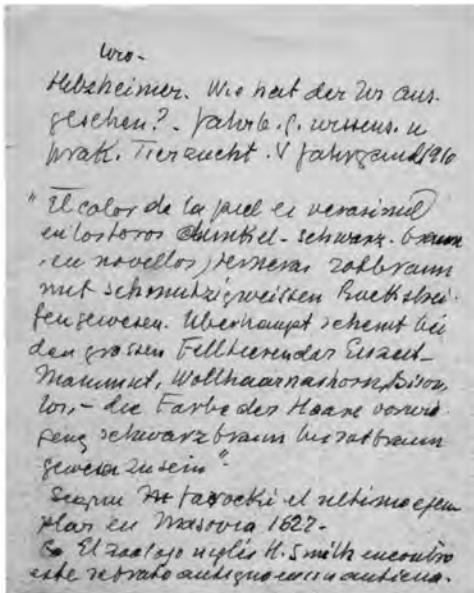 uro-
Hilzheimer. Wie hat der Ur aus-
gesehen?. Jahrb. f. wissens. u
prak. Tierzucht. V Jahrgand 1910
"El color de la piel es verosimil
en los toros dunkel-schwarz-braun
, en novellos, terneras rotbraun
mit schmutzigweissen Rückstrei-
fen gewesen. Uberhaupt scheint bei
den grossen Felltieren der Eiszeit-
Mammut, Wollhaarnashorn, Bison,
Ur, - die Farbe der Haare vorwie-
geng schwarzbraun bis rotbraun
gewesen zu sein".
Segun Jarocki el ultimo ejem
plar en Masovia 1627-
El zoologo inglés H. Smith encontro
este retrato antiguo en un anticua.